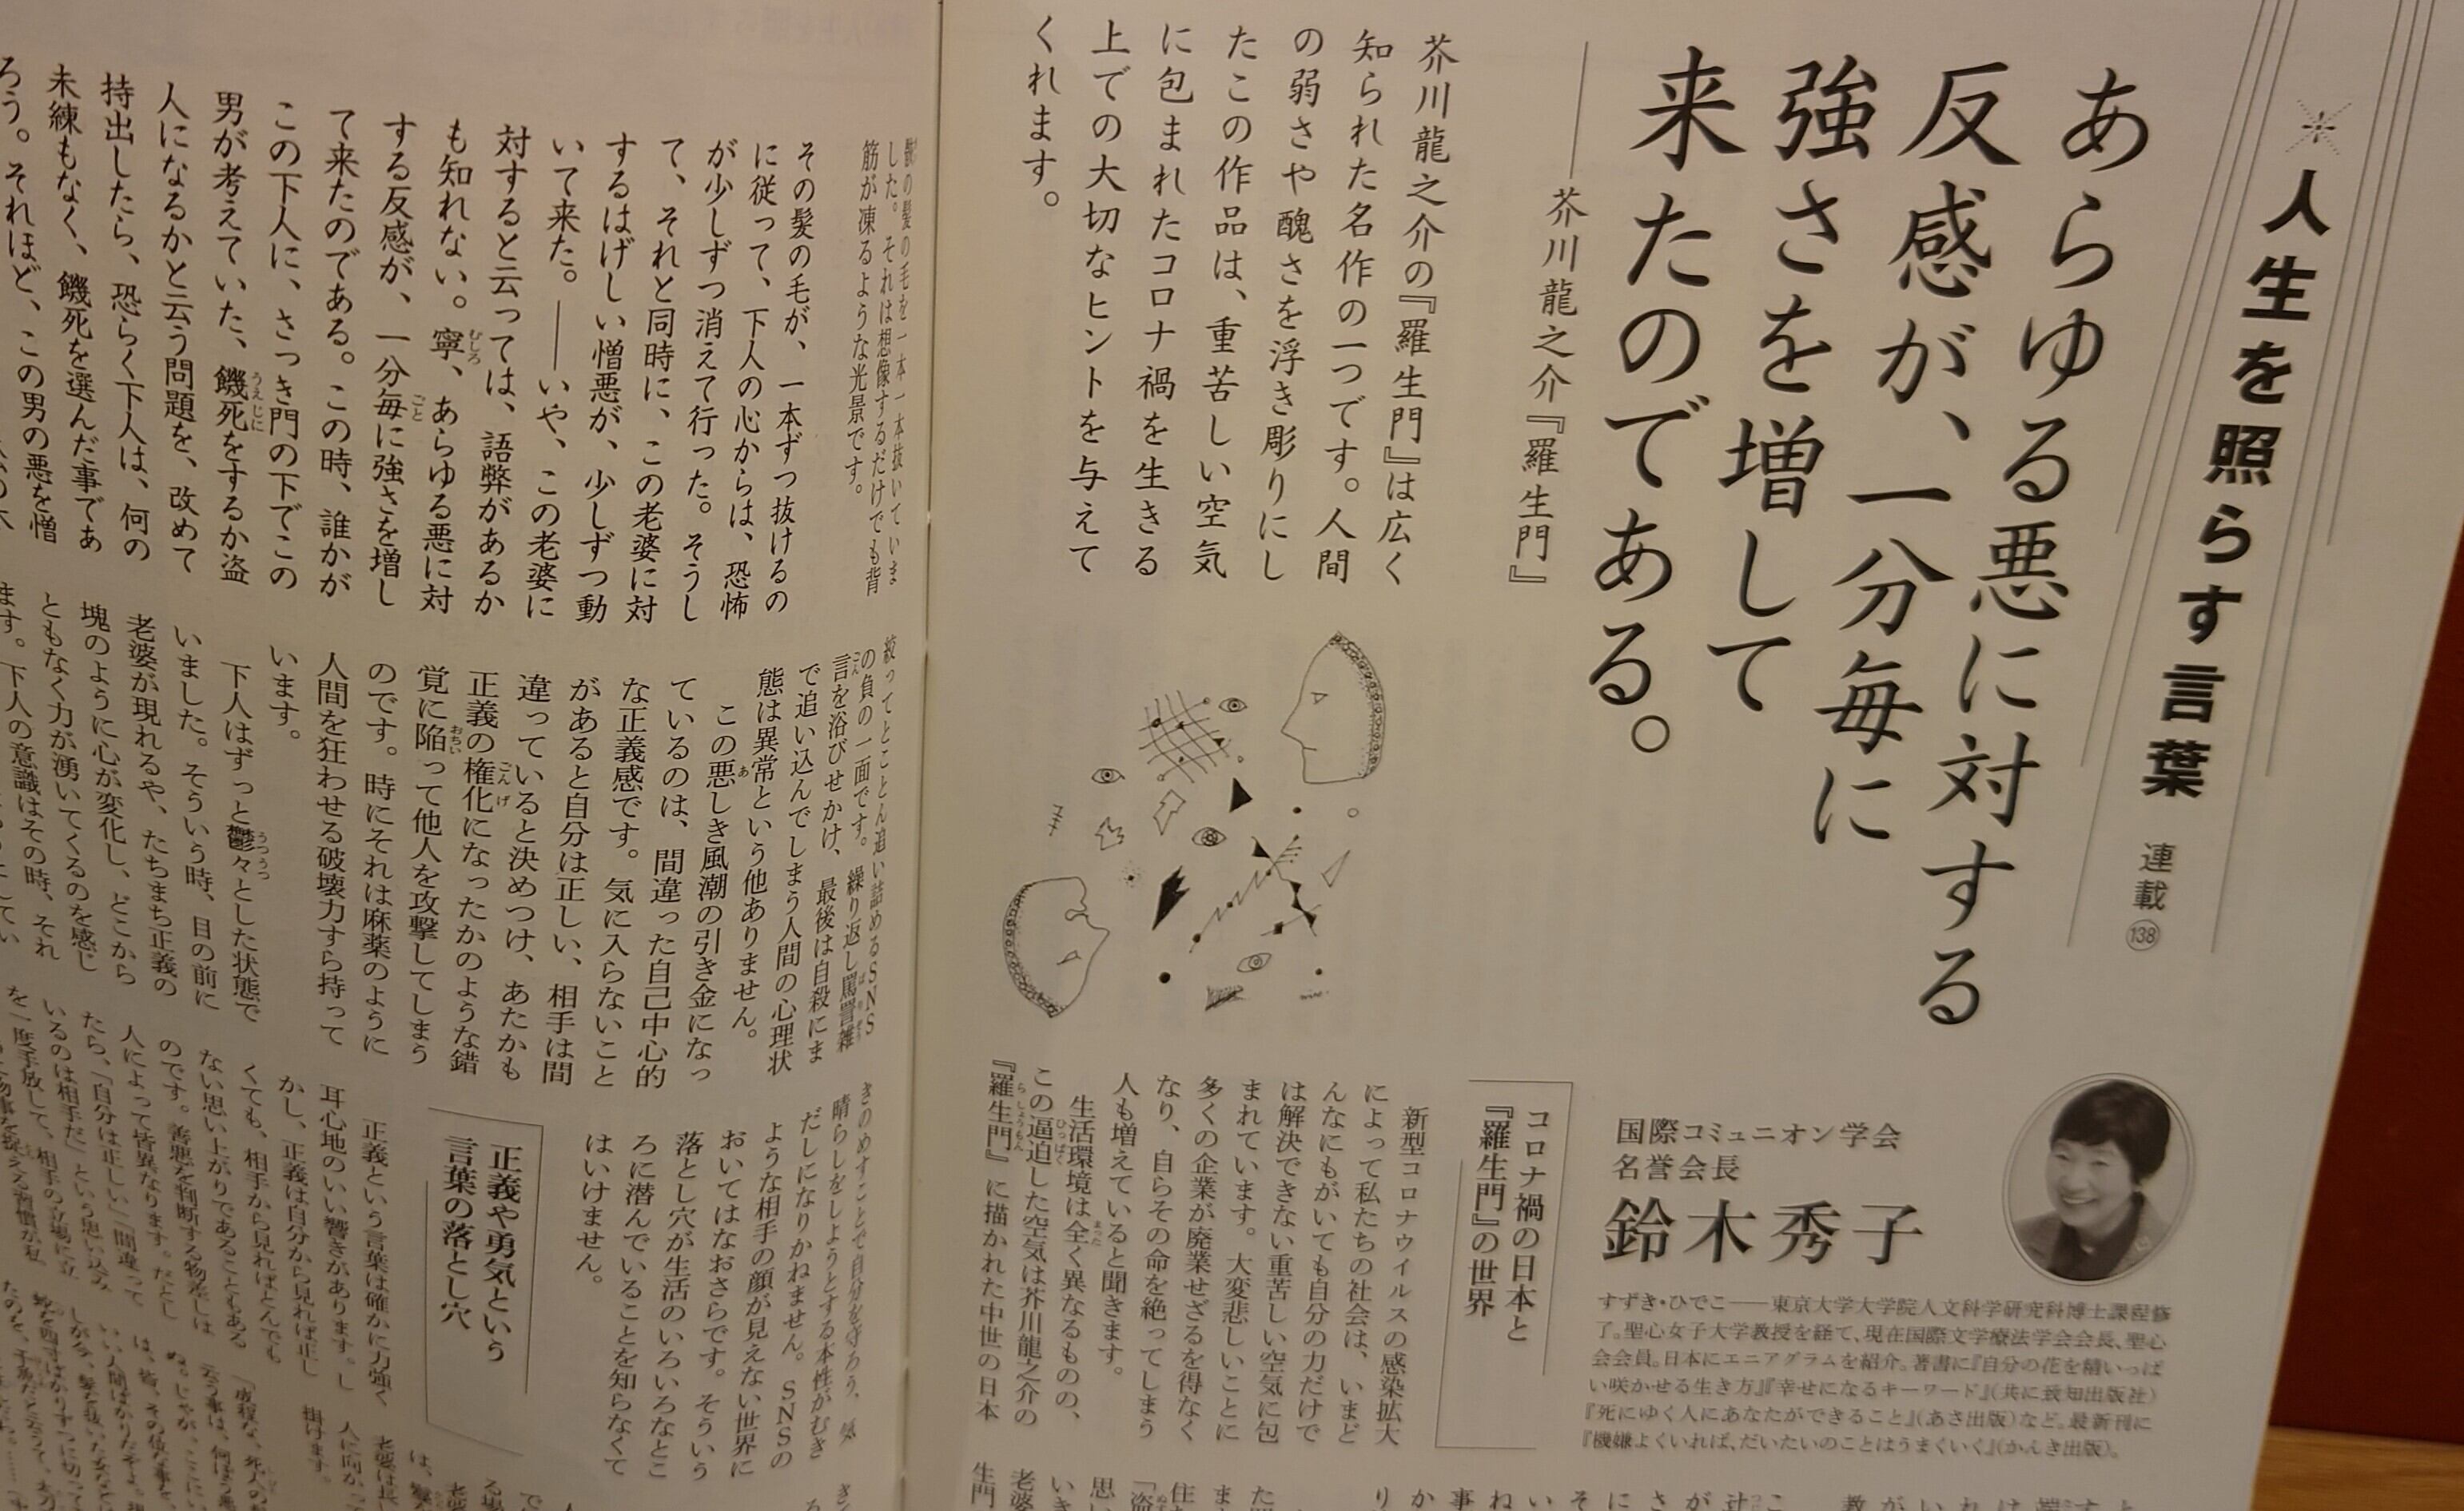 人生を照らす言葉
連載138
あらゆる悪に対する
反感が、一分毎に
強さを増して
来たのである。
――芥川龍之介『羅生門』
芥川龍之介の『羅生門』は広く
知られた名作の一つです。人間
の弱さや醜さを浮き彫りにし
たこの作品は、重苦しい空気
に包まれたコロナ禍を生きる
上での大切なヒントを与えて
くれます。
国際コミュニオン学会
名誉会長
鈴木秀子
すずき・ひでこ――東京大学大学院人文科学研究科博士課程修
了。聖心女子大学教授を経て、現在国際文学療法学会会長、聖心
会会員。日本にエニアグラムを紹介。著書に『自分の花を精いっぱ
い咲かせる生き方』『幸せになるキーワード』(共に致知出版社)
『死にゆく人にあなたができること』(あさ出版)など。最新刊に
『機嫌よくいれば、だいたいのことはうまくいく』(かんき出版)。
コロナ禍の日本と
『羅生門』の世界
新型コロナウイルスの感染拡大
によって私たちの社会は、いまど
んなにもがいても自分の力だけで
は解決できない重苦しい空気に包
まれています。大変悲しいことに
多くの企業が廃業せざるを得なく
なり、自らその命を絶ってしまう
人も増えていると聞きます。
生活環境は全く異なるものの、
この逼迫した空気は芥川龍之介の
『羅生門』に描かれた中世の日本
の髪の毛を一本一本抜いていま
した。それは想像するだけでも背
筋が凍るような光景です。
その髪の毛が、一本ずつ抜けるの
に従って、下人の心からは、恐怖
が少しずつ消えて行った。そうし
て、それと同時に、この老婆に対
するはげしい憎悪が、少しずつ動
いて来た。――いや、この老婆に
対すると云っては、語弊があるか
も知れない。寧、あらゆる悪に対
する反感が、一分毎に強さを増し
て来たのである。この時、誰かが
この下人に、さっき門の下でこの
男が考えていた、饑死をするか盗
人になるかと云う問題を、改めて
持出したら、恐らく下人は、何の
未練もなく、饑死を選んだ事であ
ろう。それほど、この男の悪を憎
絞ってとことん追い詰めるSNS
の負の一面です。繰り返し罵詈雑
言を浴びせかけ、最後は自殺にま
で追い込んでしまう人間の心理状
態は異常という他ありません。
この悪しき風潮の引き金になっ
ているのは、間違った自己中心的
な正義感です。気に入らないこと
があると自分は正しい、相手は間
違っていると決めつけ、あたかも
正義の権化になったかのような錯
覚に陥って他人を攻撃してしまう
のです。時にそれは麻薬のように
人間を狂わせる破壊力すら持って
います。
下人はずっと鬱々とした状態で
いました。そういう時、目の前に
老婆が現れるや、たちまち正義の
塊のように心が変化し、どこから
ともなく力が湧いてくるのを感じ
ます。下人の意識はその時、それ
きのめすことで自分を守ろう、気
晴らしをしようとする本性がむき
だしになりかねません。SNSの
ような相手の顔が見えない世界に
おいてはなおさらです。そういう
落とし穴が生活のいろいろなとこ
ろに潜んでいることを知らなくて
はいけません。
正義や勇気という
言葉の落とし穴
正義という言葉は確かに力強く
耳心地のいい響きがあります。し
かし、正義は自分から見れば正し
くても、相手から見ればとんでも
ない思い上がりであることもある
のです。善悪を判断する物差しは
人によって皆異なります。だとし
たら、「自分は正しい」「間違って
いるのは相手だ」という思い込み
を一度手放して、相手の立場に立